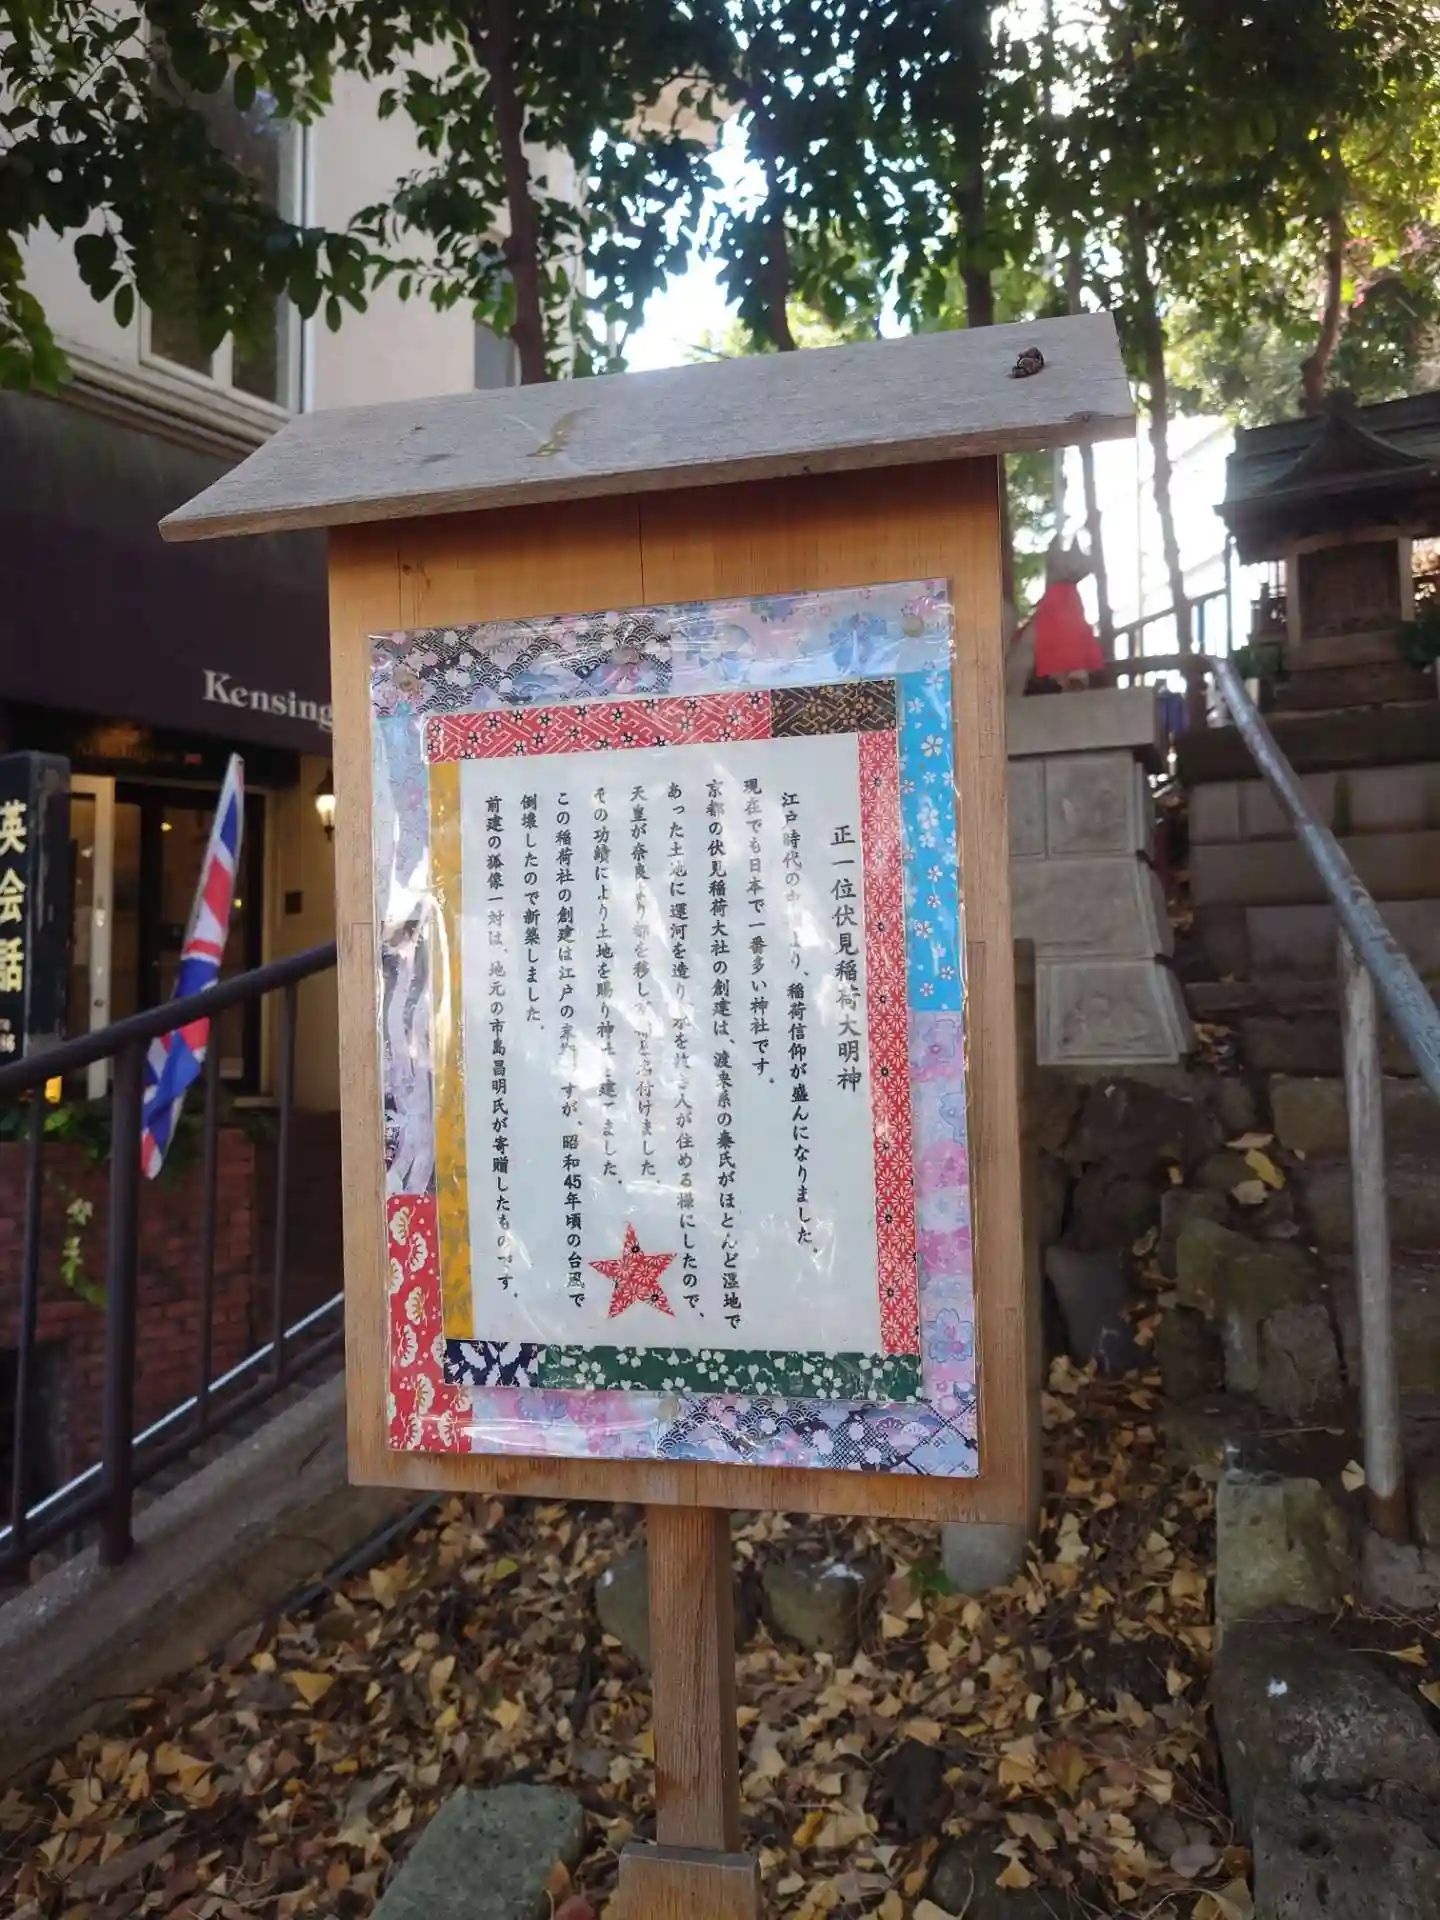 正一位伏見稲荷大明神
江戸時代の中 より、稲荷信仰が盛んになりました。
現在でも日本で一番多い神社です。
京都の伏見稲荷大社の創建は、渡来系の秦氏がほとんど湿地で
あった土地に運河を造り 水を 人が住める様にしたので、
天皇が奈良より都を移し 名付けました。
その功績により土地を賜り神社 建てました。
この稲荷社の創建は江戸の末期 すが、昭和45年頃の台風で
倒壊したので新築しました。
前建の狐像一対は、地元の市島昌明氏が寄贈したものです。
Kensing
英会話